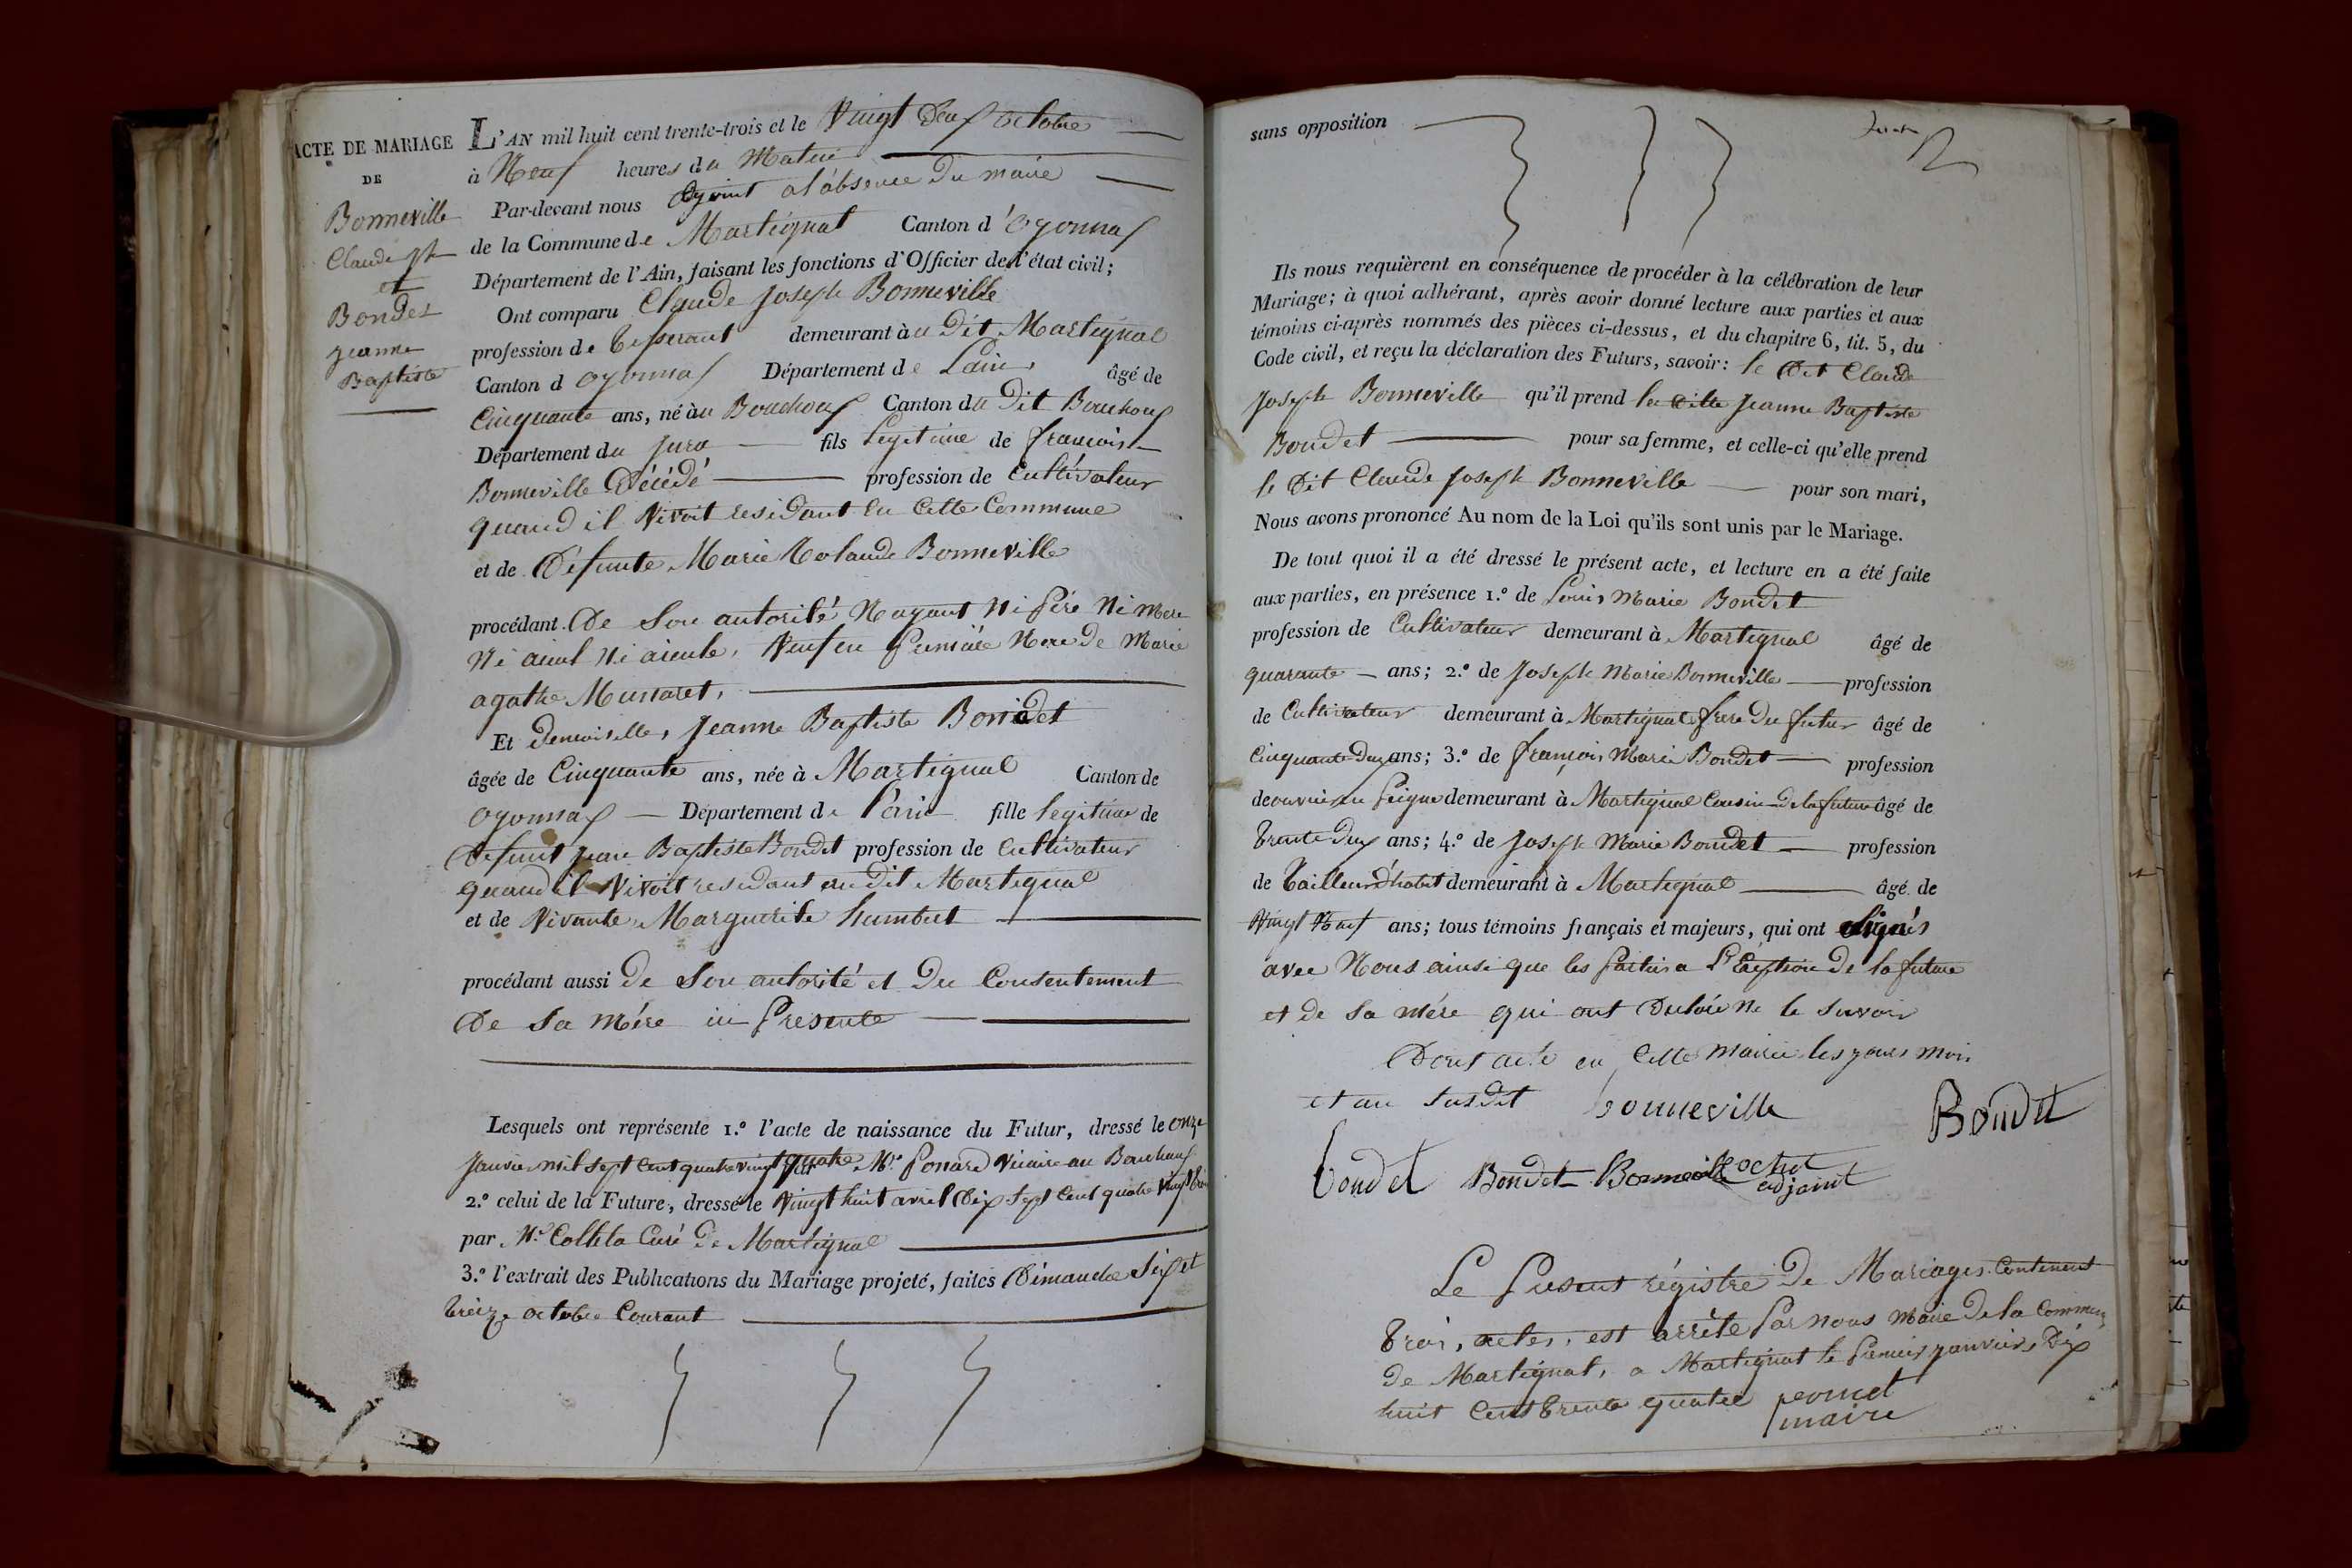 ACTE DE MARIAGE
DE
Bonneville
Claude jph
et
Bondet
jeanne
Baptiste
L'AN mil huit cent trente-trois et le Vingt Deux octobre
à Neuf heures du Matin
Par-devant nous adjoint a l'absence Du maire
de la Commune de Martignat Canton d'oyonnax
Département de l'Ain, faisant les fonctions d'Officier de l'état civil;
Ont comparu Claude joseph Bonneville
profession de tisserant demeurant à u Dit Martignat
Canton d oyonnax Département de Lain âgé de
Cinquante ans, né àu Bouchoux Canton du Dit Bouchoux
Département du jura fils Legitime de françois
Bonneville Décédé profession de Cultivateur
quand il Vivoit residant en Cette Commune
et de Défunte Marie Rolande Bonneville
procédant De Son autorité Nayant Ni Pére Ni Mere
Ni aieul Ni aieule, Veuf en Premiére Noce De Marie
agathe Musnaret,
Et Demoiselle, jeanne Baptiste Bondet
âgée de Cinquante ans, née à Martignat Canton de
oyonnax Département de l'ain fille legitime de
Defunt jean Baptiste Bondet profession de Cultivateur
quand il Vivoit residant au dit Martignat
et de Vivante Marguerite humbert
procédant aussi De Son autorité et Du Consentement
De Sa Mére ici Presente
Lesquels ont représenté 1.º l'acte de naissance du Futur, dressé le onze
janvier mil sept Cent quatre vingt quatre par Mr. Ponard Vicaire au Bouchoux
2.º celui de la Future, dressé le Vingt huit avril Dix Sept Cent quatre Vingt trois
par Mr. Colleta Curé De Martignat
3.º l'extrait des Publications du Mariage projeté, faites Dimanche Six et
treize octobre Courant
sans opposition
Ils nous requièrent en conséquence de procéder à la célébration de leur
Mariage; à quoi adhérant, après avoir donné lecture aux parties et aux
témoins ci-après nommés des pièces ci-dessus, et du chapitre 6, tit. 5, du
Code civil, et reçu la déclaration des Futurs, savoir: le Dit Claude
joseph Bonneville qu'il prend la dite jeanne Baptiste
Bondet pour sa femme, et celle-ci qu'elle prend
le Dit Claude joseph Bonneville pour son mari,
Nous avons prononcé Au nom de la Loi qu'ils sont unis par le Mariage.
De tout quoi il a été dressé le présent acte, et lecture en a été faite
aux parties, en présence 1.º de Louis Marie Bondet
profession de Cultivateur demeurant à Martignat âgé de
quarante ans; 2.º de joseph Marie Bonneville profession
de Cultivateur demeurant à Martignat frere Du futur âgé de
Cinquante Deux ans; 3.º de françois Marie Bondet profession
de ouvrier en Peigne demeurant à Martignat Cousin De la future âgé de
trente Deux ans; 4.º de joseph Marie Bondet profession
de tailleur d'habit demeurant à Martignat âgé de
Vingt Neuf ans; tous témoins français et majeurs, qui ont Signés
avec Nous ainsi que les Parties a L'Exeption De la future
et de Sa Mére qui ont Declaré Ne le Savoir
Dont acte en Cette Mairie les jours Mois
et an Susdit bonneville Bondet
bondet Bondet Bonneville
adjoint
Le Present régistre De Mariages Contenent
trois actes, est arrêté Par nous Maire De la Commune
De Martignat, a Martignat le Premier janvier, Dix
huit Cent trente quatre
maire